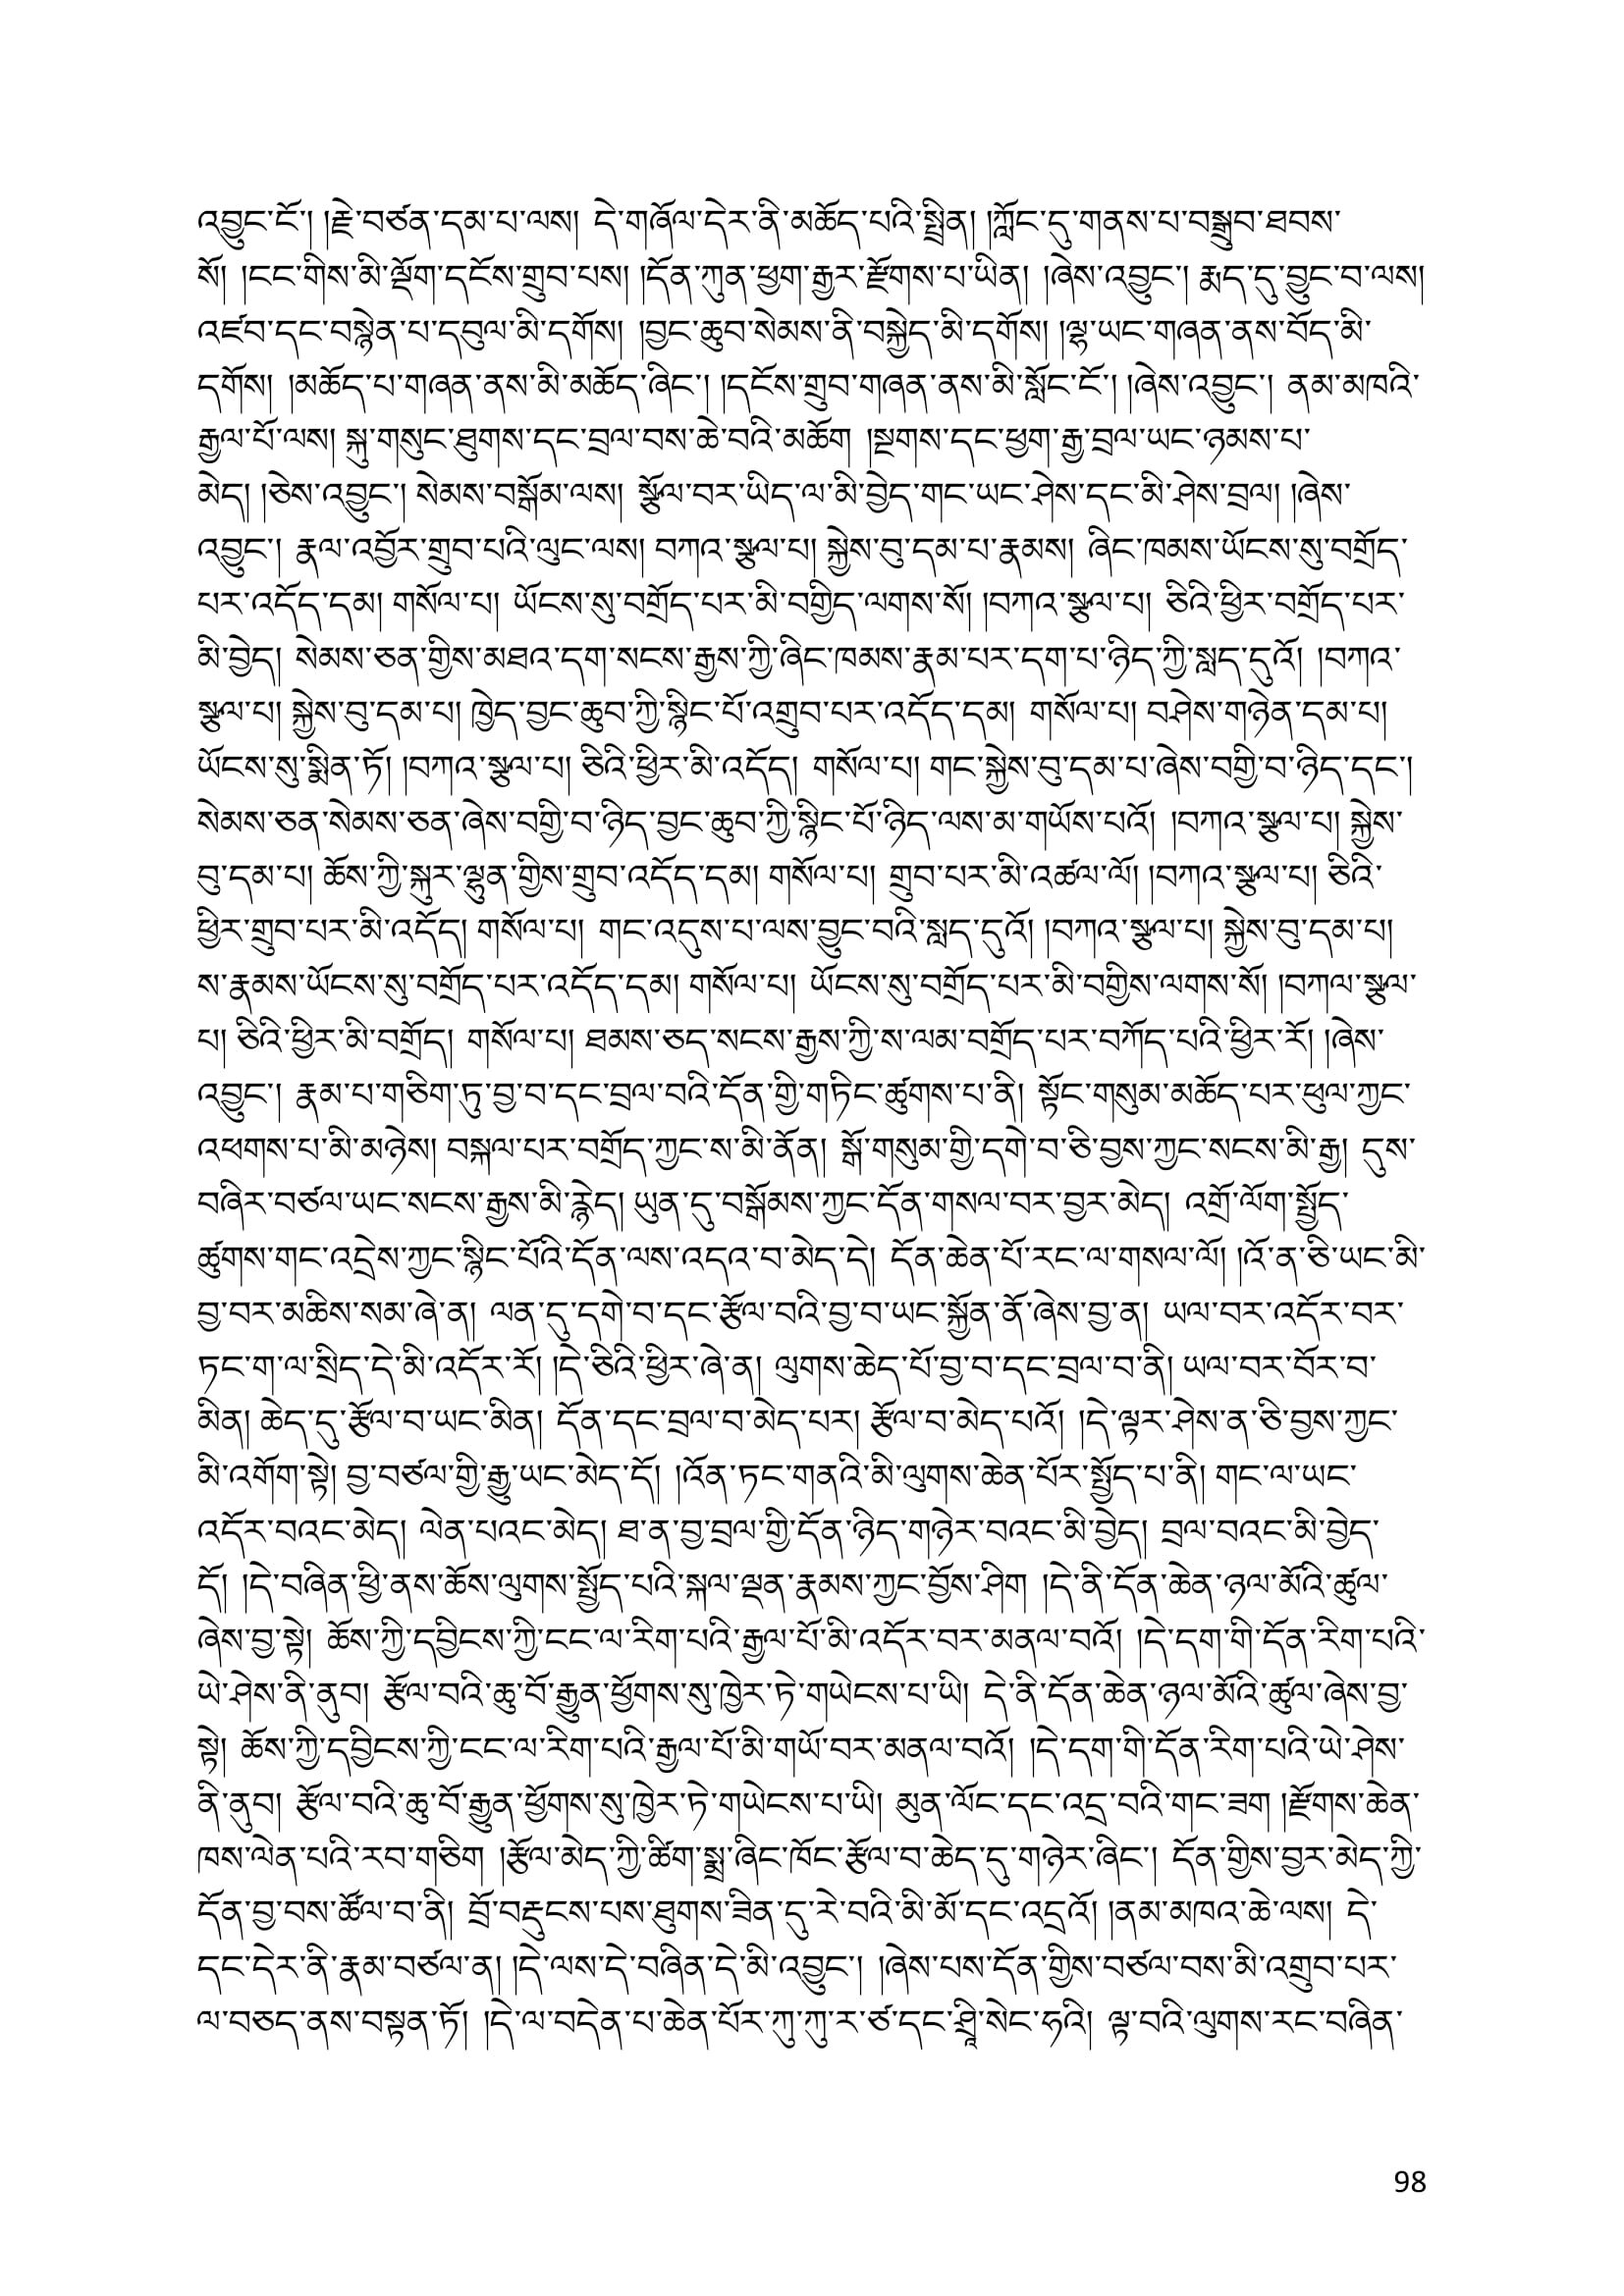 འབྱུང་ངོ་། །རྗེ་བཙན་དམ་པ་ལས། དེ་གཞོལ་དེར་ནི་མཆོད་པའི་སྤྲིན། །ཀློང་དུ་གནས་པ་བསྒྲུབ་ཐབས་
སོ། །ངང་གིས་མི་ལྡོག་དངོས་གྲུབ་པས། །དོན་ཀུན་ཕྱག་རྒྱར་རྫོགས་པ་ཡིན། །ཞེས་འབྱུང་། རྨད་དུ་བྱུང་བ་ལས།
འཛབ་དང་བསྙེན་པ་དབུལ་མི་དགོས། །བྱང་ཆུབ་སེམས་ནི་བསྐྱེད་མི་དགོས། །ལྷ་ཡང་གཞན་ནས་བོད་མི་
དགོས། །མཆོད་པ་གཞན་ནས་མི་མཆོད་ཞིང་། །དངོས་གྲུབ་གཞན་ནས་མི་སློང་ངོ་། །ཞེས་འབྱུང་། ནམ་མཁའི་
རྒྱལ་པོ་ལས། སྐུ་གསུང་ཐུགས་དང་བྲལ་བས་ཆེ་བའི་མཆོག །སྔགས་དང་ཕྱག་རྒྱ་བྲལ་ཡང་ཉམས་པ་
མེད། །ཅེས་འབྱུང་། སེམས་བསྒོམ་ལས། རྩོལ་བར་ཡིད་ལ་མི་བྱེད་གང་ཡང་ཤེས་དང་མི་ཤེས་བྲལ། །ཞེས་
འབྱུང་། རྣལ་འབྱོར་གྲུབ་པའི་ལུང་ལས། བཀའ་སྩལ་པ། སྐྱེས་བུ་དམ་པ་རྣམས། ཞིང་ཁམས་ཡོངས་སུ་བགྲོད་
པར་འདོད་དམ། གསོལ་པ། ཡོངས་སུ་བགྲོད་པར་མི་བགྱིད་ལགས་སོ། །བཀའ་སྩལ་པ། ཅིའི་ཕྱིར་བགྲོད་པར་
མི་བྱེད། སེམས་ཅན་གྱིས་མཐའ་དག་སངས་རྒྱས་ཀྱི་ཞིང་ཁམས་རྣམ་པར་དག་པ་ཉིད་ཀྱི་སླད་དུའོ། །བཀའ་
སྩལ་པ། སྐྱེས་བུ་དམ་པ། ཁྱེད་བྱང་ཆུབ་ཀྱི་སྙིང་པོ་འགྲུབ་པར་འདོད་དམ། གསོལ་པ། བཤེས་གཉེན་དམ་པ།
ཡོངས་སུ་སྨིན་ཏོ། །བཀའ་སྩལ་པ། ཅིའི་ཕྱིར་མི་འདོད། གསོལ་པ། གང་སྐྱེས་བུ་དམ་པ་ཞེས་བགྱི་བ་ཉིད་དང་།
སེམས་ཅན་སེམས་ཅན་ཞེས་བགྱི་བ་ཉིད་བྱང་ཆུབ་ཀྱི་སྙིང་པོ་ཉིད་ལས་མ་གཡོས་པའོ། །བཀའ་སྩལ་པ། སྐྱེས་
བུ་དམ་པ། ཆོས་ཀྱི་སྐུར་ལྷུན་གྱིས་གྲུབ་འདོད་དམ། གསོལ་པ། གྲུབ་པར་མི་འཚལ་ལོ། །བཀའ་སྩལ་པ། ཅིའི་
ཕྱིར་གྲུབ་པར་མི་འདོད། གསོལ་པ། གང་འདུས་པ་ལས་བྱུང་བའི་སླད་དུའོ། །བཀའ་སྩལ་པ། སྐྱེས་བུ་དམ་པ།
ས་རྣམས་ཡོངས་སུ་བགྲོད་པར་འདོད་དམ། གསོལ་པ། ཡོངས་སུ་བགྲོད་པར་མི་བགྱིས་ལགས་སོ། །བཀལ་སྩལ་
པ། ཅིའི་ཕྱིར་མི་བགྲོད། གསོལ་པ། ཐམས་ཅད་སངས་རྒྱས་ཀྱི་ས་ལམ་བགྲོད་པར་བཀོད་པའི་ཕྱིར་རོ། །ཞེས་
འབྱུང་། རྣམ་པ་གཅིག་ཏུ་བྱ་བ་དང་བྲལ་བའི་དོན་གྱི་གཏིང་ཚུགས་པ་ནི། སྟོང་གསུམ་མཆོད་པར་ཕུལ་ཀྱང་
འཕགས་པ་མི་མཉེས། བསྐལ་པར་བགྲོད་ཀྱང་ས་མི་ནོན། སྒོ་གསུམ་གྱི་དགེ་བ་ཅི་བྱས་ཀྱང་སངས་མི་རྒྱ། དུས་
བཞིར་བཙལ་ཡང་སངས་རྒྱས་མི་རྙེད། ཡུན་དུ་བསྒོམས་ཀྱང་དོན་གསལ་བར་བྱར་མེད། འགྲོ་ལོག་སྤྱོད་
ཚུགས་གང་འདྲེས་ཀྱང་སྙིང་པོའི་དོན་ལས་འདའ་བ་མེད་དེ། དོན་ཆེན་པོ་རང་ལ་གསལ་ལོ། །འོ་ན་ཅི་ཡང་མི་
བྱ་བར་མཆིས་སམ་ཞེ་ན། ལན་དུ་དགེ་བ་དང་རྩོལ་བའི་བྱ་བ་ཡང་སྐྱོན་ནོ་ཞེས་བྱ་ན། ཡལ་བར་འདོར་བར་
ཏང་ག་ལ་སྲིད་དེ་མི་འདོར་རོ། །དེ་ཅིའི་ཕྱིར་ཞེ་ན། ལུགས་ཆེད་པོ་བྱ་བ་དང་བྲལ་བ་ནི། ཡལ་བར་བོར་བ་
མིན། ཆེད་དུ་རྩོལ་བ་ཡང་མིན། དོན་དང་བྲལ་བ་མེད་པར། རྩོལ་བ་མེད་པའོ། །དེ་ལྟར་ཤེས་ན་ཅི་བྱས་ཀྱང་
མི་འགོག་སྟེ། བྱ་བཙལ་གྱི་རྒྱུ་ཡང་མེད་དོ། །འོན་ཏང་གནའི་མི་ལུགས་ཆེན་པོར་སྤྱོད་པ་ནི། གང་ལ་ཡང་
འདོར་བའང་མེད། ལེན་པའང་མེད། ཐ་ན་བྱ་བྲལ་གྱི་དོན་ཉིད་གཉེར་བའང་མི་བྱེད། བྲལ་བའང་མི་བྱེད་
དོ། །དེ་བཞིན་ཕྱི་ནས་ཆོས་ལུགས་སྤྱོད་པའི་སྐལ་ལྡན་རྣམས་ཀྱང་བྱོས་ཤིག །དེ་ནི་དོན་ཆེན་ཉལ་མོའི་ཚུལ་
ཞེས་བྱ་སྟེ། ཆོས་ཀྱི་དབྱིངས་ཀྱི་ངང་ལ་རིག་པའི་རྒྱལ་པོ་མི་འདོར་བར་མནལ་བའོ། །དེ་དག་གི་དོན་རིག་པའི་
ཡེ་ཤེས་ནི་ནུབ། རྩོལ་བའི་ཆུ་བོ་རྒྱུན་ཕྱོགས་སུ་ཁྱེར་ཏེ་གཡེངས་པ་ཡི། དེ་ནི་དོན་ཆེན་ཉལ་མོའི་ཚུལ་ཞེས་བྱ་
སྟེ། ཆོས་ཀྱི་དབྱིངས་ཀྱི་ངང་ལ་རིག་པའི་རྒྱལ་པོ་མི་གཡོ་བར་མནལ་བའོ། །དེ་དག་གི་དོན་རིག་པའི་ཡེ་ཤེས་
ནི་ནུབ། རྩོལ་བའི་ཆུ་བོ་རྒྱུན་ཕྱོགས་སུ་ཁྱེར་ཏེ་གཡེངས་པ་ཡི། མུན་ལོང་དང་འདྲ་བའི་གང་ཟག །རྫོགས་ཆེན་
ཁས་ལེན་པའི་རབ་གཅིག །རྩོལ་མེད་ཀྱི་ཚིག་སྨྲ་ཞིང་ཁོང་རྩོལ་བ་ཆེད་དུ་གཉེར་ཞིང་། དོན་གྱིས་བྱར་མེད་ཀྱི་
དོན་བྱ་བས་ཚོལ་བ་ནི། བྲོ་བརྡུངས་པས་ཐུགས་ཟིན་དུ་རེ་བའི་མི་མོ་དང་འདྲའོ། །ནམ་མཁའ་ཆེ་ལས། དེ་
དང་དེར་ནི་རྣམ་བཙལ་ན། །དེ་ལས་དེ་བཞིན་དེ་མི་འབྱུང་། །ཞེས་པས་དོན་གྱིས་བཙལ་བས་མི་འགྲུབ་པར་
ལ་བཅད་ནས་བསྟན་ཏོ། །དེ་ལ་བདེན་པ་ཆེན་པོར་ཀུ་ཀུ་ར་ཙ་དང་ཤྲཱི་སེང་ཧའི། ལྟ་བའི་ལུགས་རང་བཞིན་
98